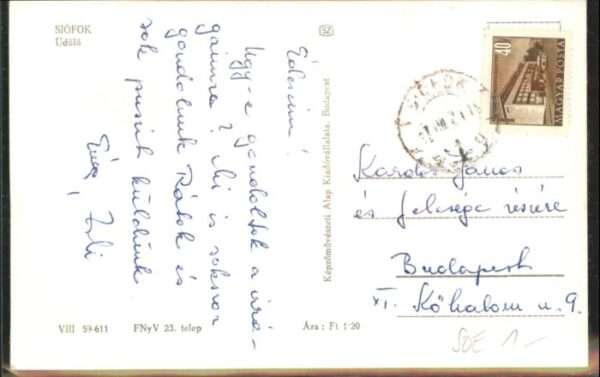 SIÓFOK
Üdülő
Édeseim!
Ugy-e gondoltok a virá-
gaimra? Mi is sokszor
gondolunk Rátok és
sok puszit küldünk
Éva,
VIII 59-611
FNyV 23. telep
Ára: Ft 1·20
Képzőművészeti Alap Kiadóvállalata, Budapest
40
MAGYAR POSTA
SIÓFOK
Kardos János
és felesége részére
Budapest
XI. Kőhalom u. 9.